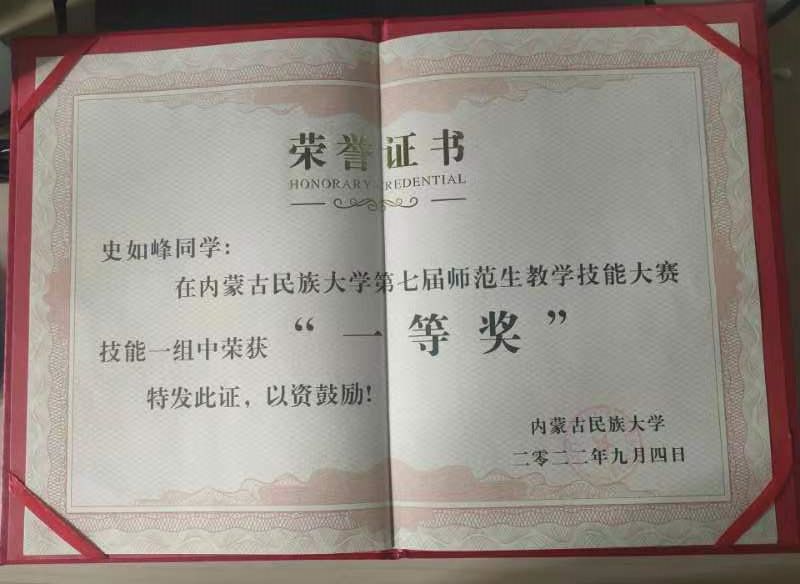 荣誉证书
HONORARY CREDENTIAL
史如峰同学：
在内蒙古民族大学第七届师范生教学技能大赛
技能一组中荣获“一等奖”
特发此证，以资鼓励！
内蒙古民族大学
二零二二年九月四日